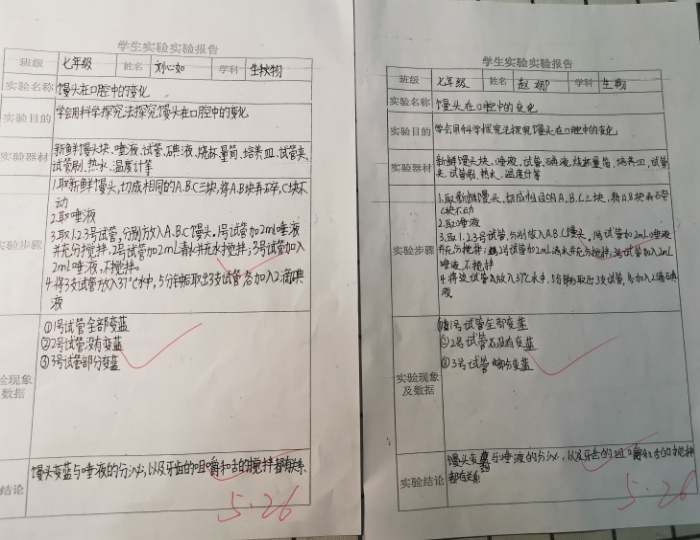 学生实验实验报告
班级 七年级 姓名 刘心如 学科 生物
实验名称 馒头在口腔中的变化
实验目的 学会用科学探究法探究馒头在口腔中的变化
实验器材 新鲜馒头块、唾液、试管、碘液、烧杯、量筒、培养皿、试管夹、
试管刷、热水、温度计等
1.取新鲜馒头,切成相同的A.B.C三块,将A.B块弄碎,C块不
动
2.取唾液
实验步骤 3.取1.2.3号试管,分别放入A.B.C馒头。1号试管加2mL唾液
并充分搅拌,2号试管加2mL清水并充分搅拌;3号试管加入
2mL唾液,不搅拌。
4.将3支试管放入37℃水中,5分钟后取出3支试管,各加入2滴碘
液
①1号试管全部变蓝
②2号试管没有变蓝
③3号试管部分变蓝
实验现象
数据
结论 馒头变蓝与唾液的分泌,以及牙齿的咀嚼和舌的搅拌都有关系
5.26
学生实验实验报告
班级 七年级 姓名 赵 学科 生物
实验名称 馒头在口腔中的变化
实验目的 学会用科学探究法探究馒头在口腔中的变化
实验器材 新鲜馒头块、唾液、试管、碘液、烧杯、量筒、培养皿、试管
夹、试管刷、热水、温度计等
1.取新鲜馒头,切成相同的A、B.C.三块,将A.B块弄碎
C块不动
2.取唾液
3.取1.2.3号试管,分别放入A.B.C馒头。1号试管加2mL唾液
实验步骤 并充分搅拌;2号试管加2mL清水并充分搅拌;3号试管加入2mL
唾液,不搅拌
4.将3支试管放入37℃水中,5分钟后取出3支试管,各加入2滴碘
液。
①1号试管全部变蓝
②2号试管没有变蓝
③3号试管部分变蓝
实验现象
及数据
馒头变蓝与唾液的分泌,以及牙齿的咀嚼和舌的搅拌
实验结论 都有关系
5.26